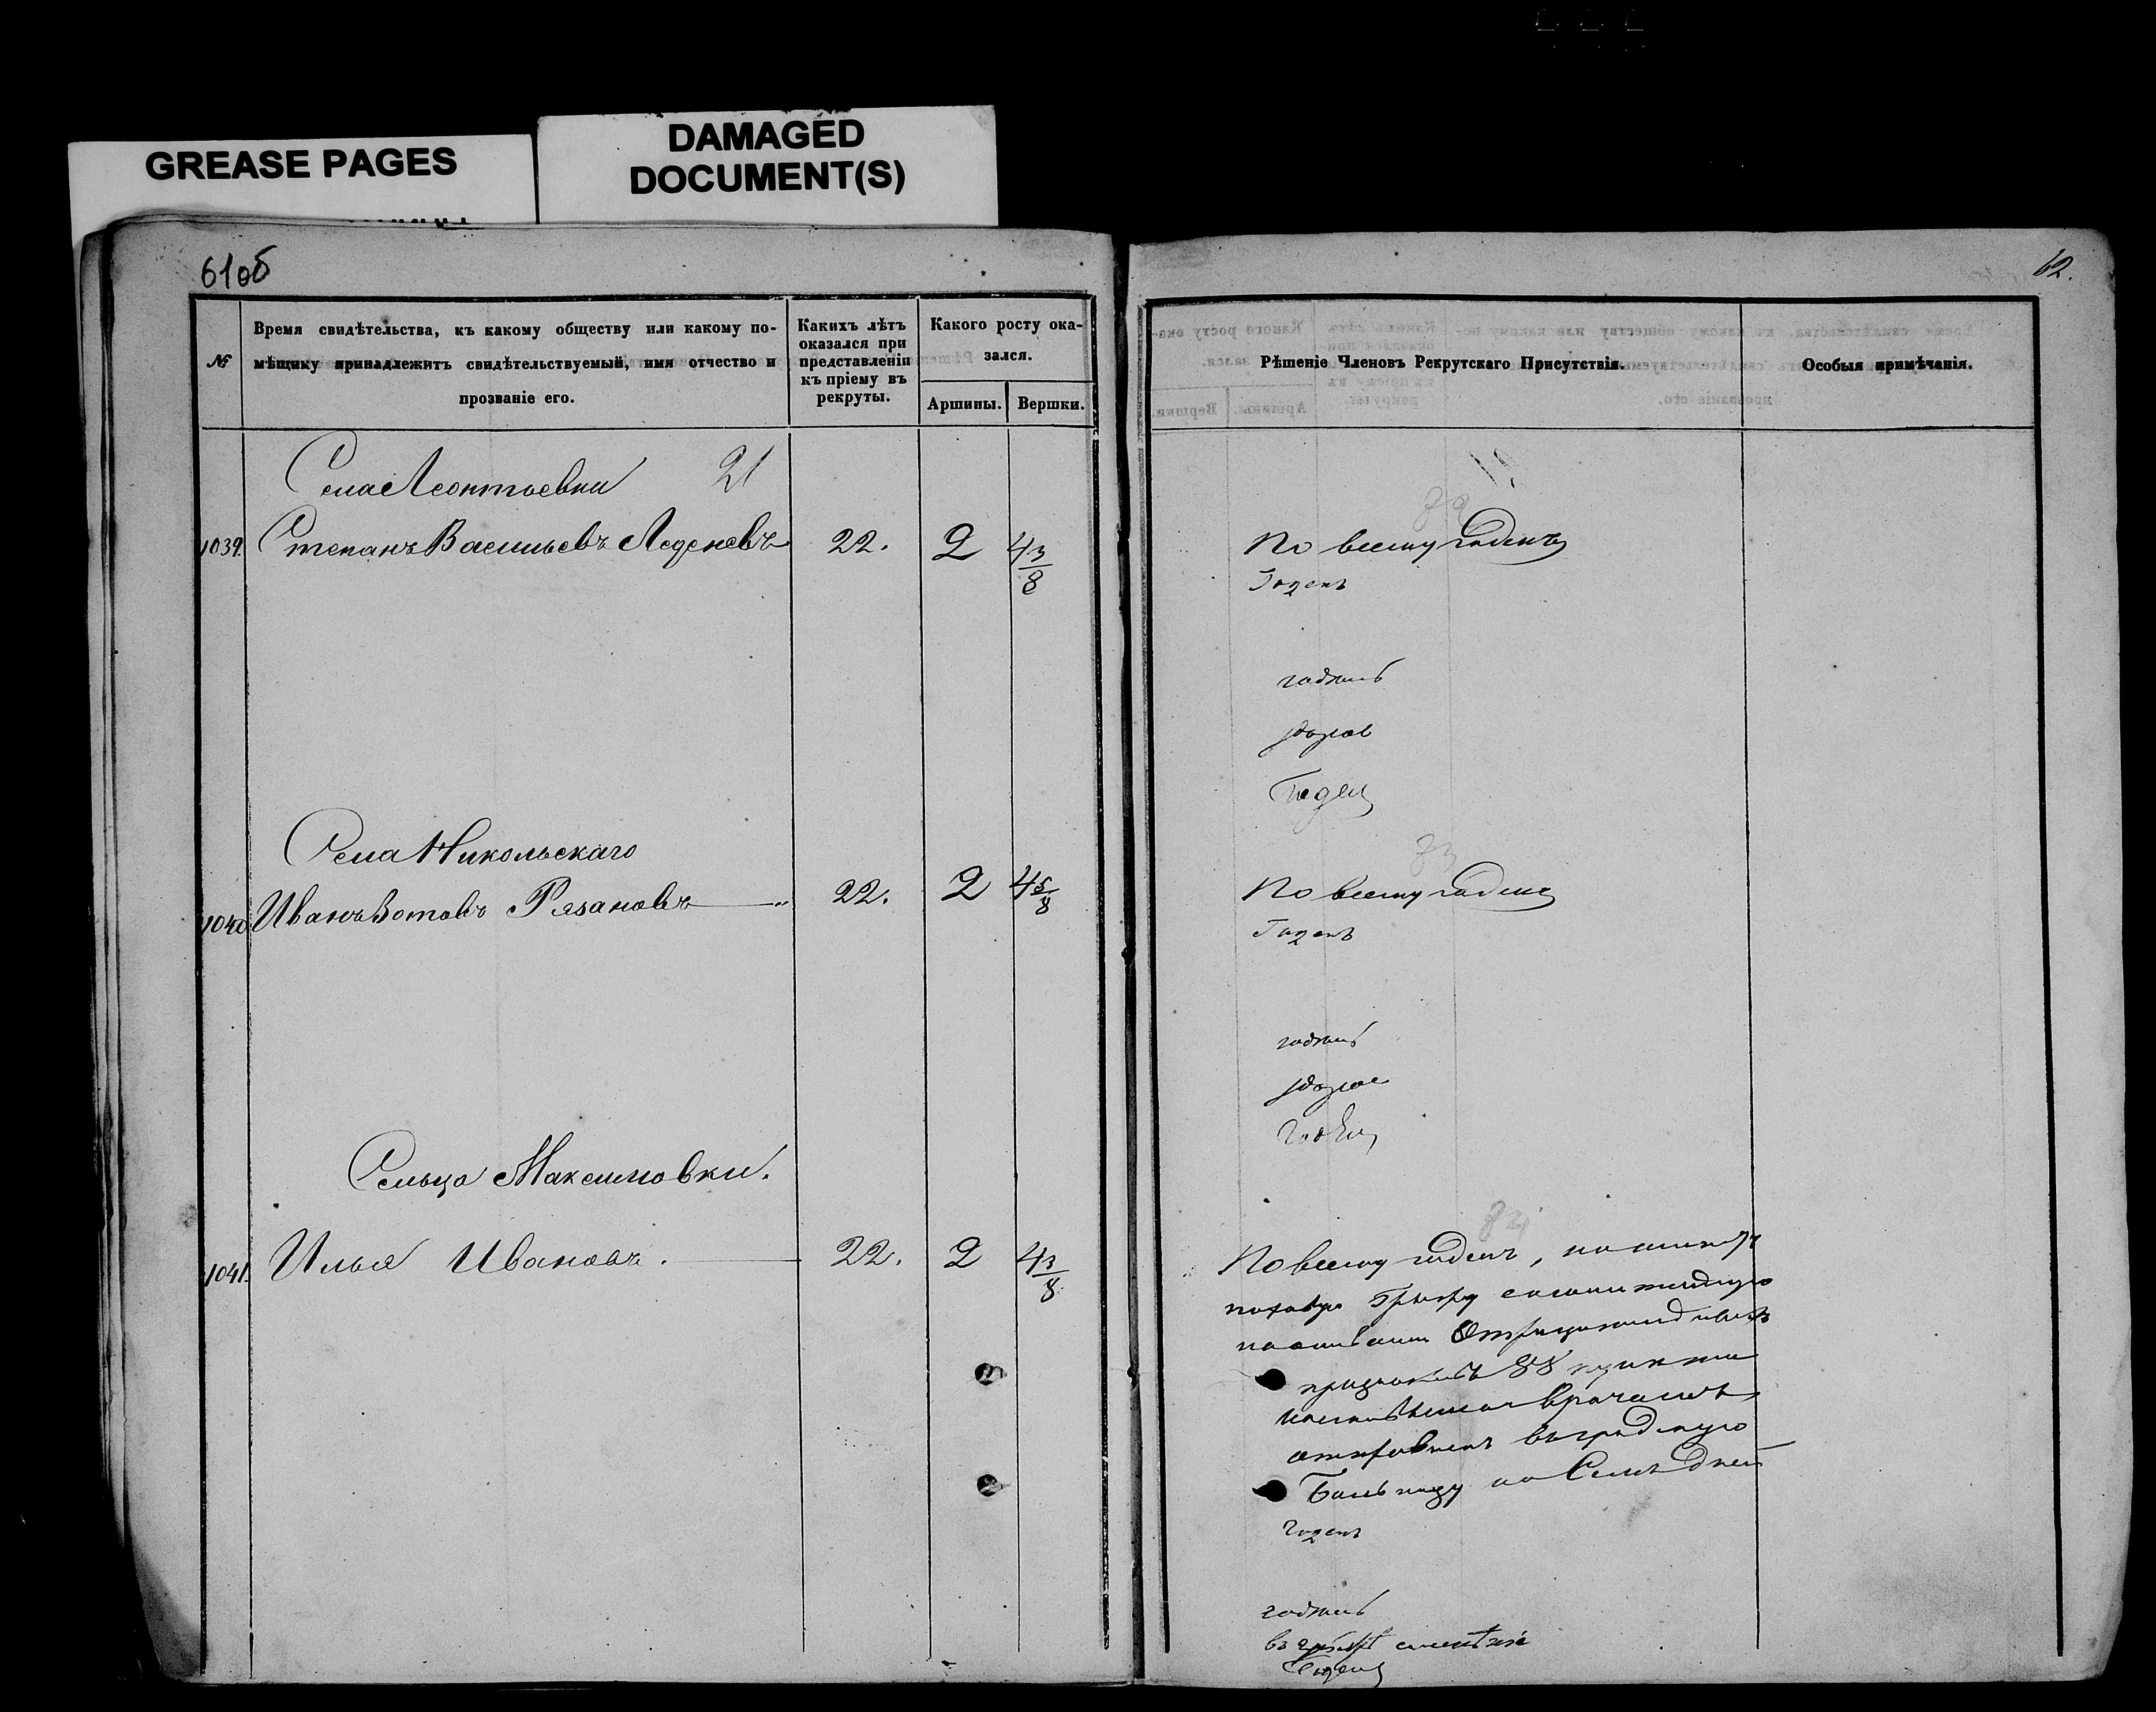 GREASE PAGES
DAMAGED
DOCUMENT(S)
61об
№
Время свидѣтельства, къ какому обществу или какому по-
мѣщику принадлежитъ свидѣтельствуемый, имя отчество и
прозваніе его.
Какихъ лѣтъ
оказался при
представленіи
къ пріему въ
рекруты.
Какого росту ока-
зался.
Аршины.
Вершки.
Села Леонтьевки 21
1039. Степанъ Васильевъ Леденевъ 22. 2 4 3/8
Села Никольскаго
1040 Иванъ Зотовъ Резановъ 22. 2 4 5/8
Сельца Максимовки.
1041. Илья Ивановъ. 22. 2 4 3/8
62.
Рѣшеніе Членовъ Рекрутскаго Присутствія.
Особыя примѣчанія.
По всему годенъ
Годенъ
годенъ
здоров
Годен
83
По всему годенъ
Годенъ
годенъ
здоров
Годен
84
По всему годенъ,
88 пункта
врачамъ
отправленъ въ градскую
Больницу на Семь дней
Годенъ
годенъ
Годен